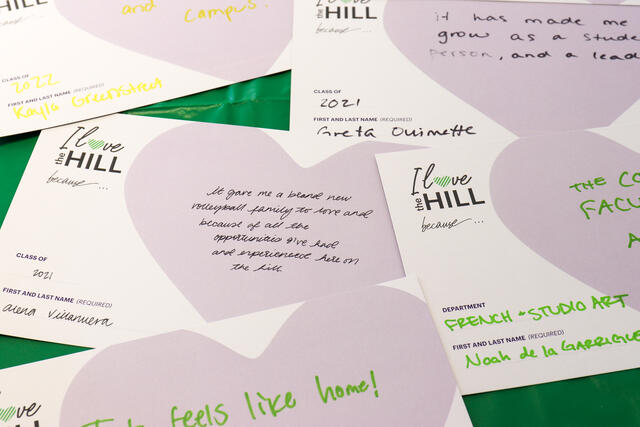 the HILL
because...
and campus!
CLASS OF
2022
FIRST AND LAST NAME (REQUIRED)
Kayla Greenstreet
the HILL
because...
it has made me
grow as a stude
person, and a lead
CLASS OF
2021
FIRST AND LAST NAME (REQUIRED)
Greta Ouimette
I love
the HILL
because...
It gave me a brand new
volleyball family to love and
because of all the
opportunities I've had
and experienced here on
the hill
CLASS OF
2021
FIRST AND LAST NAME (REQUIRED)
alena Villanueva
I love
the HILL
because...
THE CO
FACU
A
DEPARTMENT
FRENCH + STUDIO ART
FIRST AND LAST NAME (REQUIRED)
Noah de la GARRIGUE
I love
the HILL
feels like home!